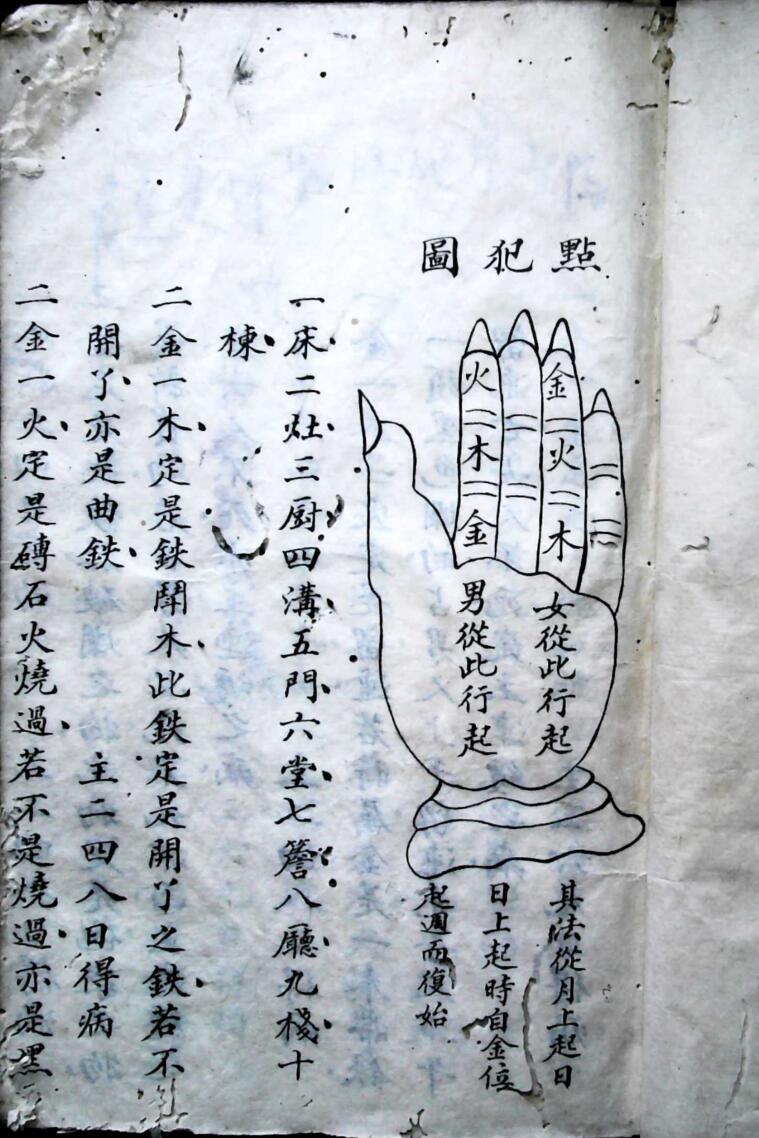 點犯圖
金火木
女從此行起
火木金
男從此行起
其法從月上起日
日上起時自金位
起週而復始
一床二灶三厨四溝五門六堂七簷八廳九棧十
棟
二金一木定是鉄鬪木此鉄定是開丫之鉄若不
開丫亦是曲鉄 主二四八日得病
二金一火定是磚石火燒過若不是燒過亦是黑